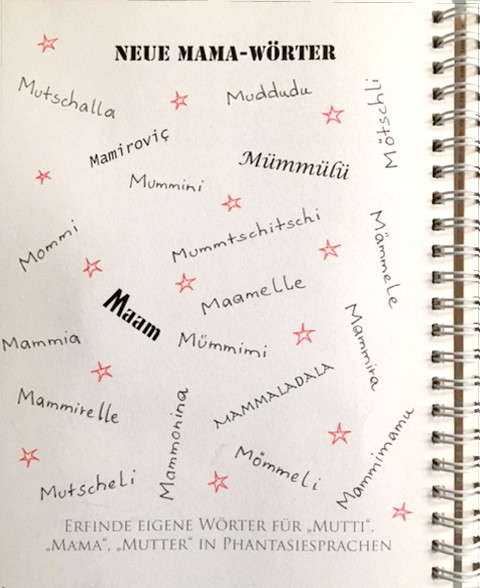 NEUE MAMA-WÖRTER
Mutschalla
Muddudu
Mötschli
Mamiroviç
Mümmülü
Mummini
Mommi
Mummtschitschi
Mämmele
Maamelle
Maam
Mammia
Mümmimi
Mammira
Mammirelle
MAMMALADALA
Mammonina
Mutscheli
Mömmeli
Mammimamu
ERFINDE EIGENE WÖRTER FÜR „MUTTI“,
„MAMA“, „MUTTER“ IN PHANTASIESPRACHEN